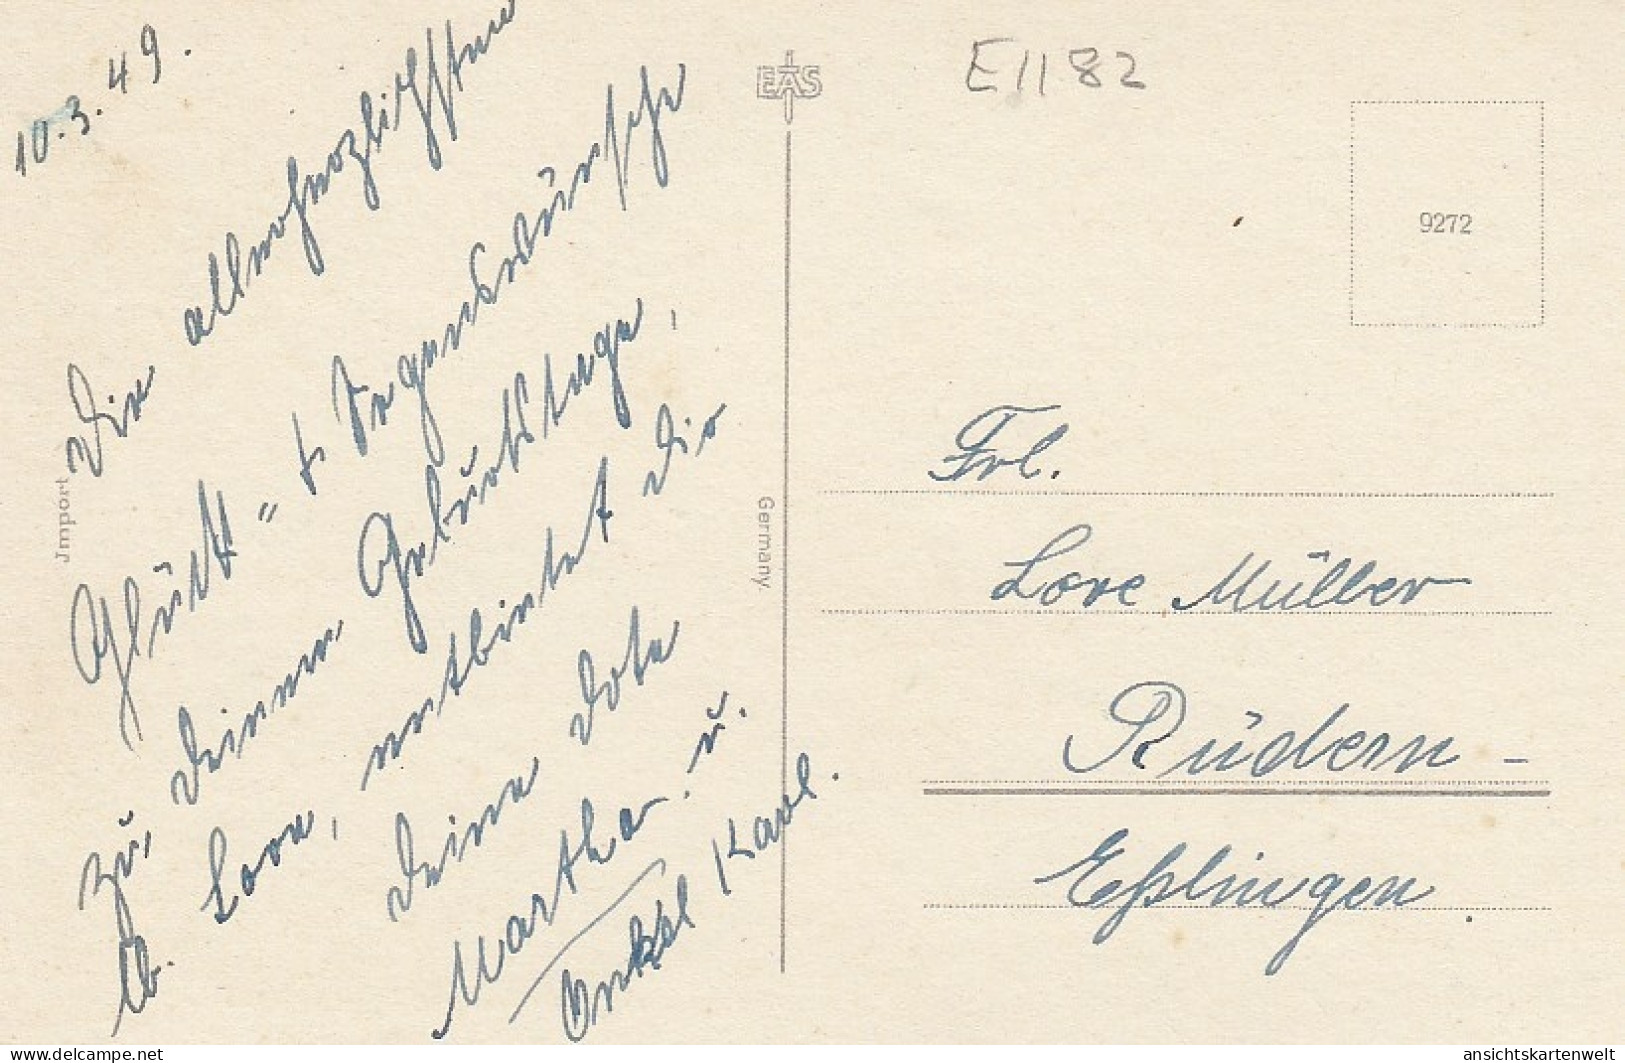 10.3.49.
Die allerherzlichsten
Glück= & Segenswünsche
zu Deinem Geburtstage,
lb. Lore, entbietet Dir
Deine Dote
Martha u.
Onkel Karl.
Jmport
EAS
Germany
E1182
9272
Frl.
Lore Müller
Rüdern -
Eßlingen.
www.delcampe.net
ansichtskartenwelt